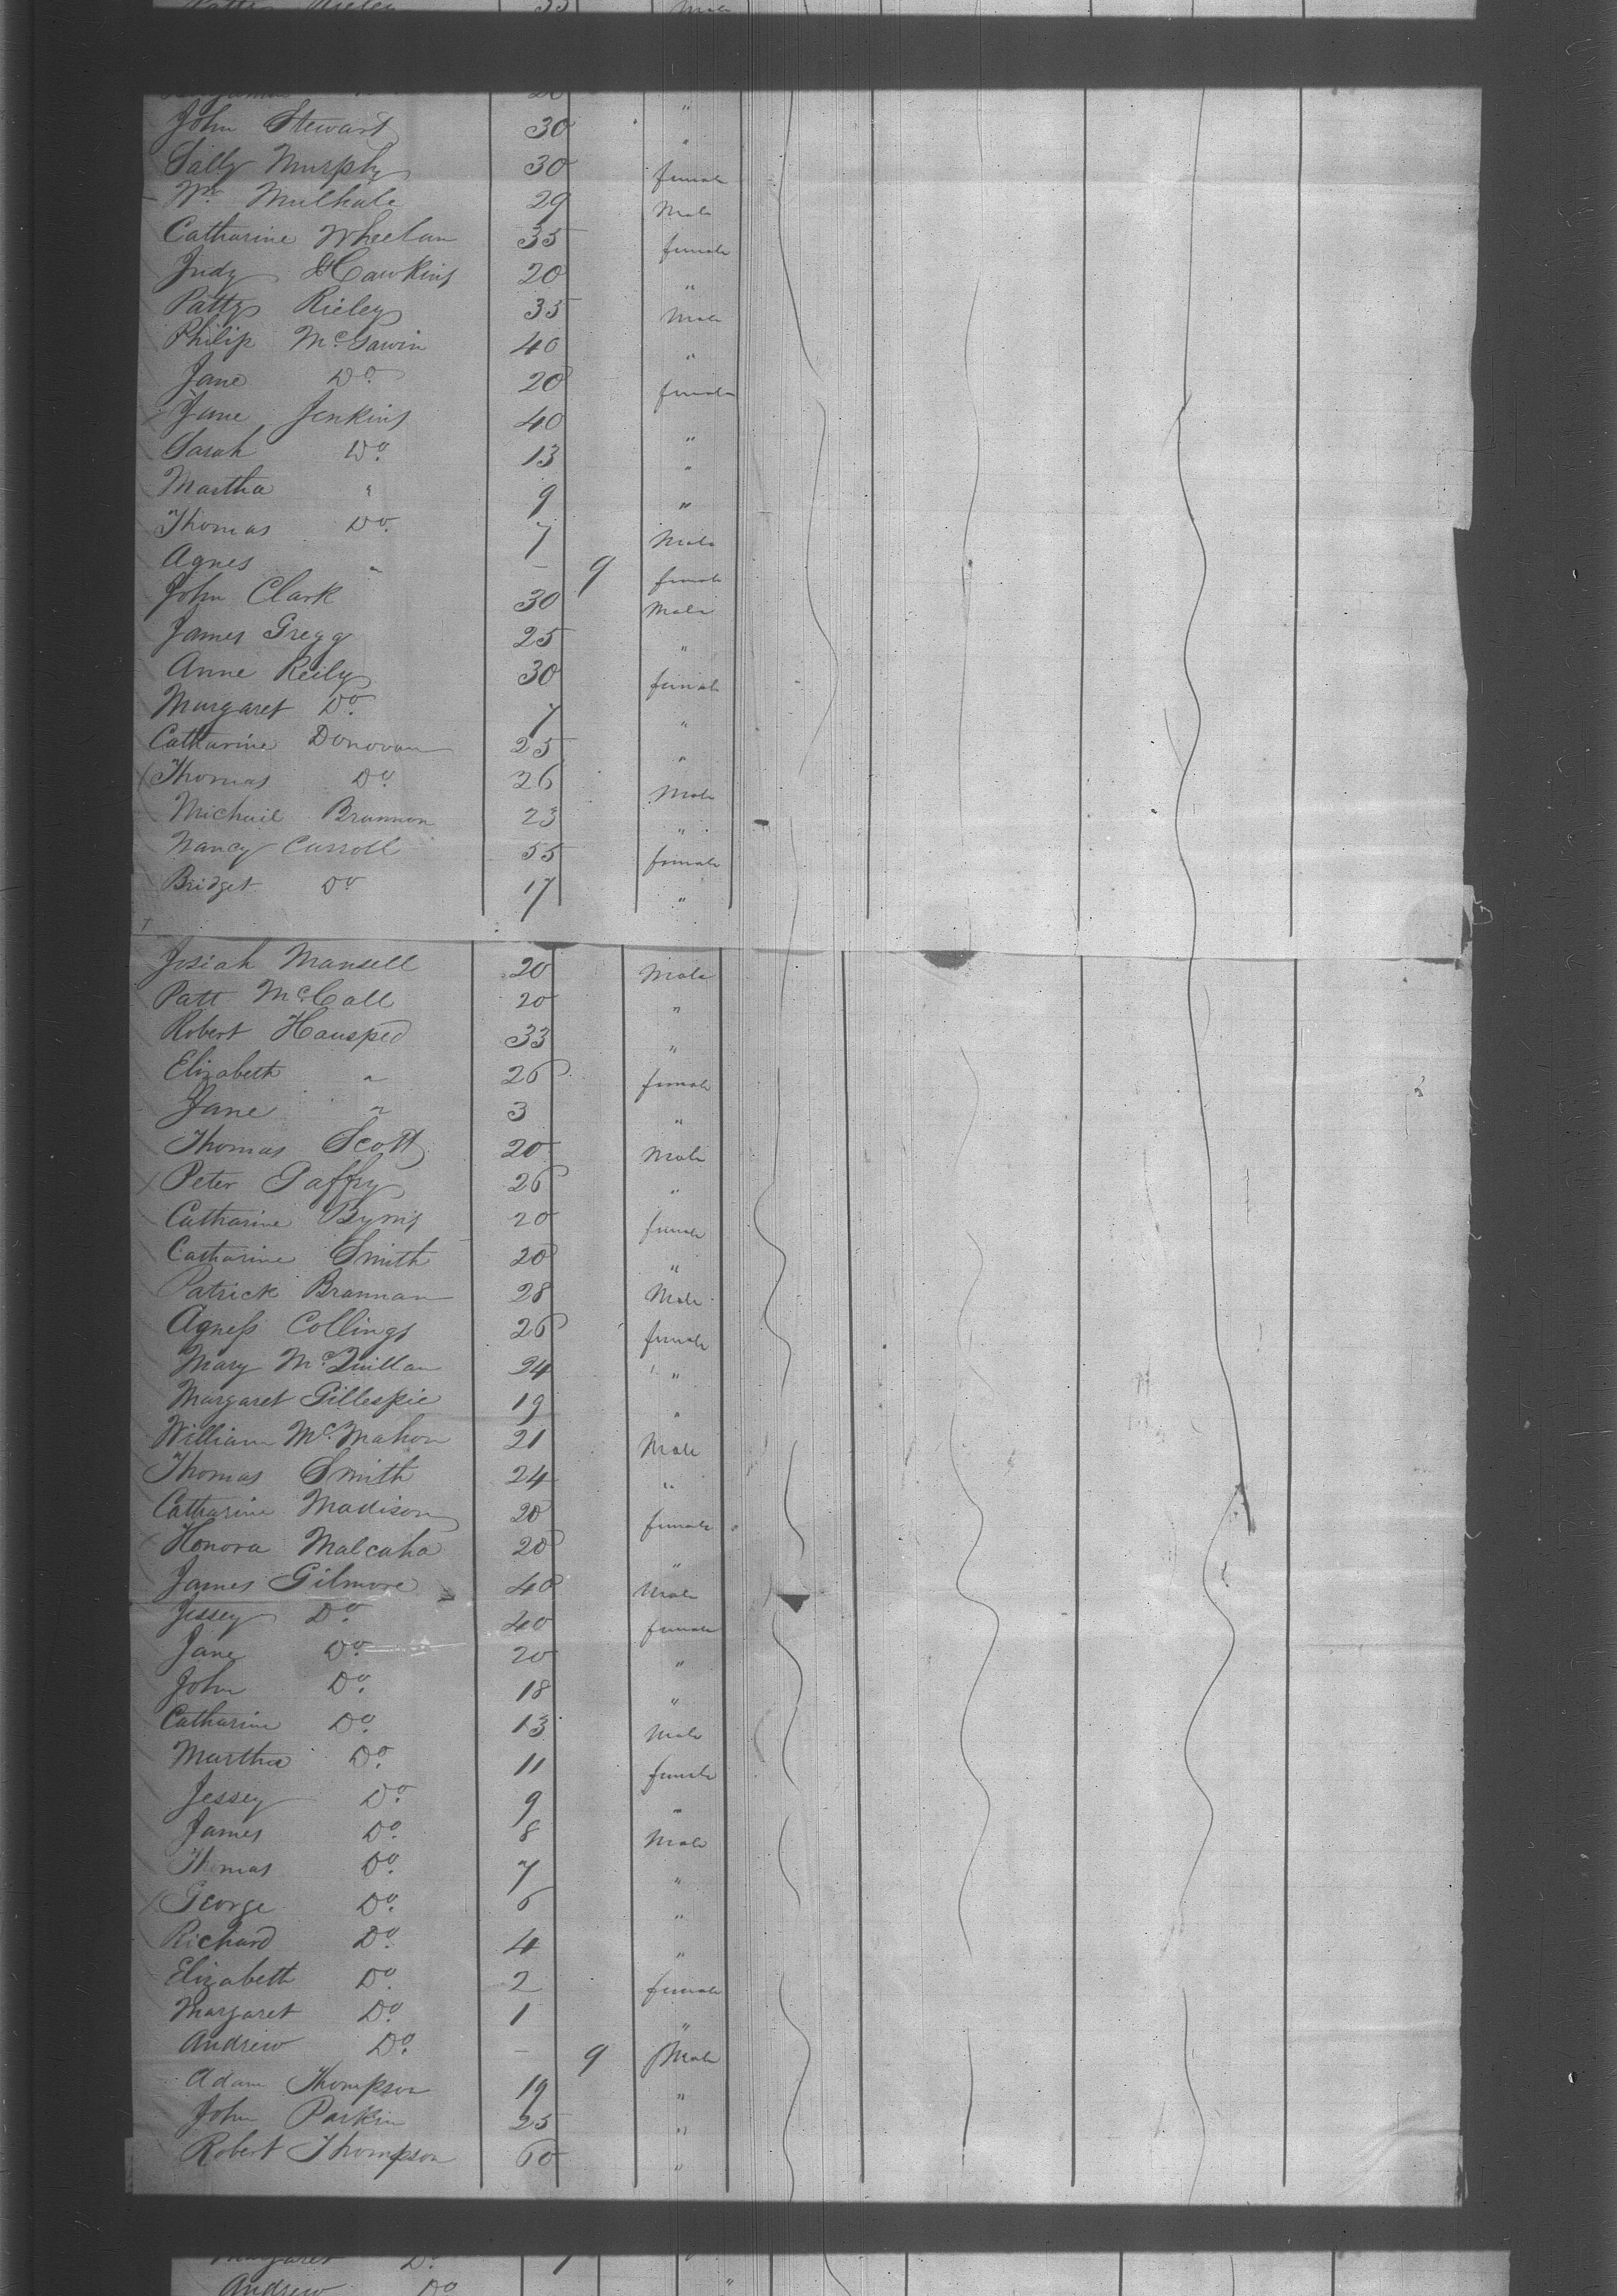 Patty Rieley 35 Male
20 "
John Stewart 30 "
Sally Murphy 30 female
Wm. Mulhale 29 Male
Catharine Wheelan 35 female
Judy Hawkins 20 "
Patty Rieley 35 Male
Philip McGawin 40 "
Jane Do. 20 female
Jane Jenkins 40 "
Sarah Do. 13 "
Martha " 9 "
Thomas Do. 7 Male
Agnes " – 9 female
John Clark 30 Male
James Gregg 25 "
Anne Reily 30 female
Margaret Do. 7 "
Catharine Donovan 25 "
Thomas Do. 26 Male
Michail Brannon 23 "
Nancy Carroll 55 female
Bridget Do 17 "
Josiah Mansell 20 Male
Patt McCall 20 "
Robert Hausped 33 "
Elizabeth " 26 female
Jane " 3 "
Thomas Scott 20 Male
Peter Gaffry 26 "
Catharine Byrns 20 female
Catharine Smith 20 "
Patrick Brannan 28 Male
Agness Collings 26 female
Mary McQuillan 24 "
Margaret Gillespie 19 "
William McMahon 21 Male
Thomas Smith 24 "
Catharine Madison 20 female
Honora Malcaha 20 "
James Gilmore 40 Male
Jessey Do. 40 female
Jane Do. 20 "
John Do. 18 "
Catharine Do. 13 Male
Martha Do. 11 female
Jessey Do. 9 "
James Do. 8 Male
Thomas Do. 7 "
George Do. 6 "
Richard Do. 4 "
Elizabeth Do. 2 female
Margaret Do. 1 "
Andrew Do. – 9 Male
Adam Thompson 19 "
John Parkin 25 "
Robert Thompson 60 "
Margaret Do. 1
Andrew Do "